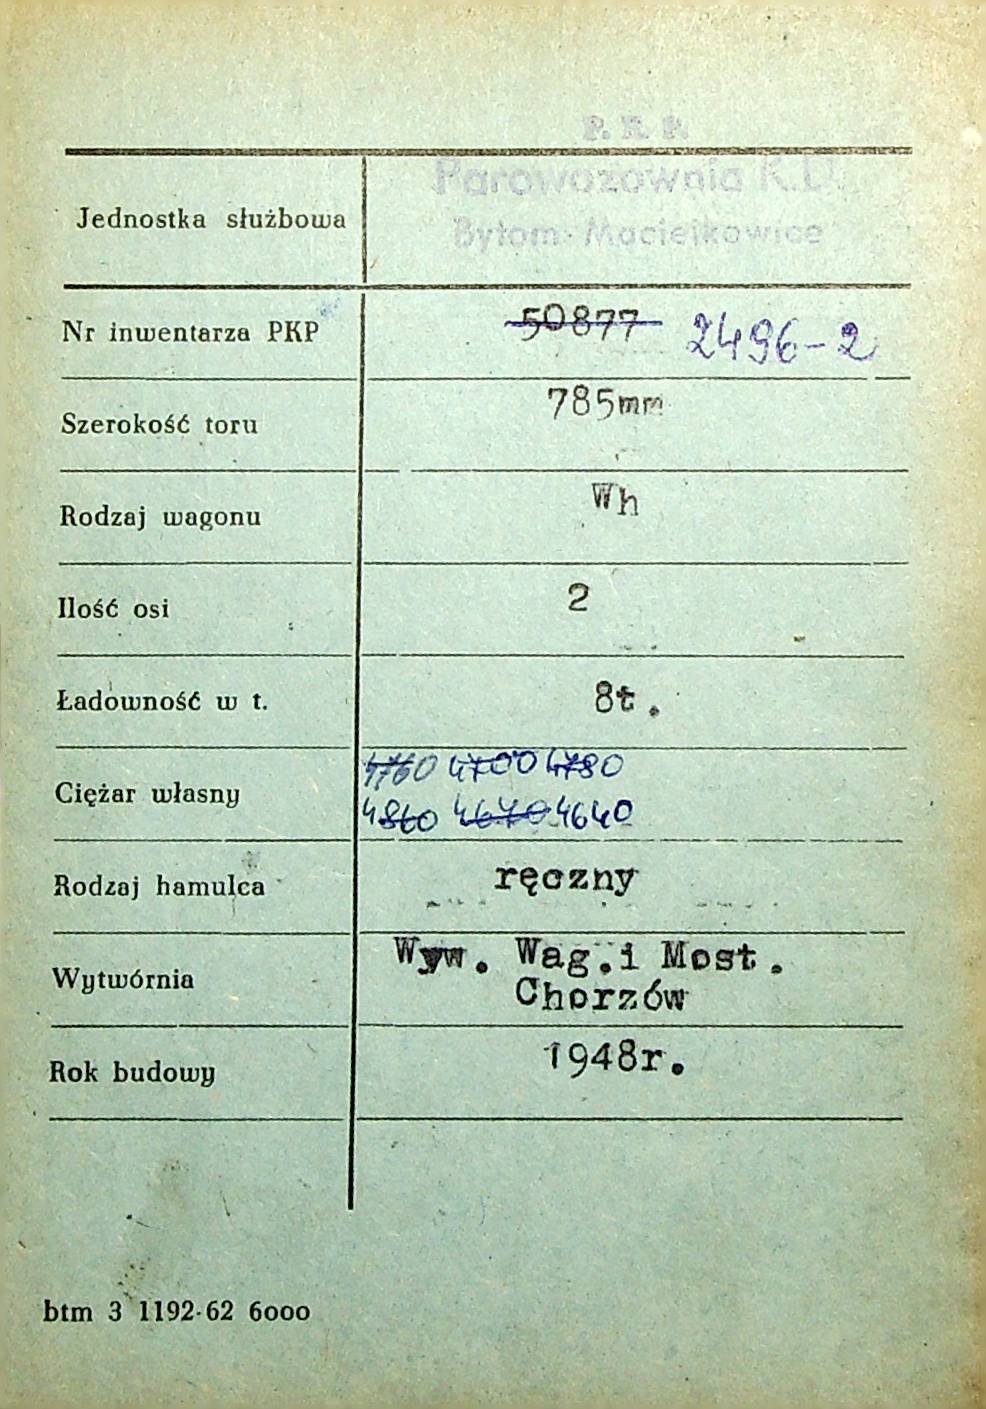 P. K. P.
Parowozownia K.D.
Jednostka służbowa
Bytom-Maciejkowice
Nr inwentarza PKP 50877 2496-2
Szerokość toru 785mm
Rodzaj wagonu Wh
Ilość osi 2
Ładowność w t. 8t.
4760 4700 4780
Ciężar własny
4860 4670 4640
Rodzaj hamulca ręczny
Wyw. Wag. i Most.
Wytwórnia
Chorzów
Rok budowy 1948r.
btm 3 1192-62 6ooo